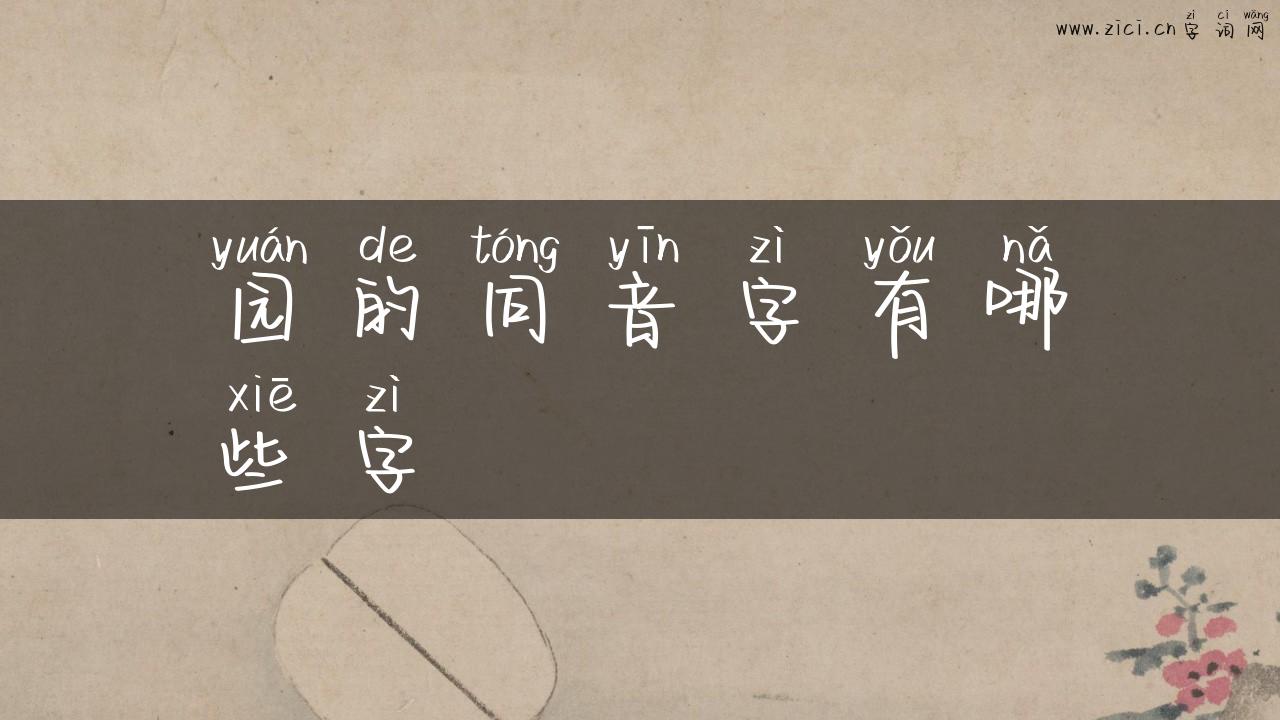 zì cí wǎng
www.zici.cn 字词网
yuán de tóng yīn zì yǒu nǎ
园的同音字有哪
xiē zì
些字